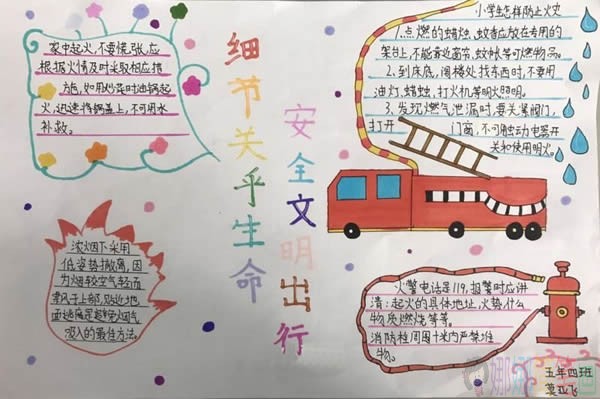 家中起火,不要慌张,应
根据火情及时采取相应措
施,如用炒菜时油锅起
火,迅速将锅盖上,不可用水
补救。
细节关乎生命
安全文明出行
小学生怎样防止火灾
1.点燃的蜡烛、蚊香应放在专用的
架台上,不能靠近窗帘、蚊帐等可燃物品。
2.到床底、阁楼处找东西时,不要用
油灯、蜡蚀、打火机等明火照明。
3.发现燃气泄漏时,要关紧阀门,
打开门窗,不可触动电器开
关和使用明火。
浓烟下采用
低姿势撤离,因
为烟较空气轻而
贴近地
吸入的最佳方法。
火警电话是119,报警时应讲
清:起火的具体地址,火势什么
物质燃烧等等。
消防栓周围十米内严禁堆
物。
五年四班